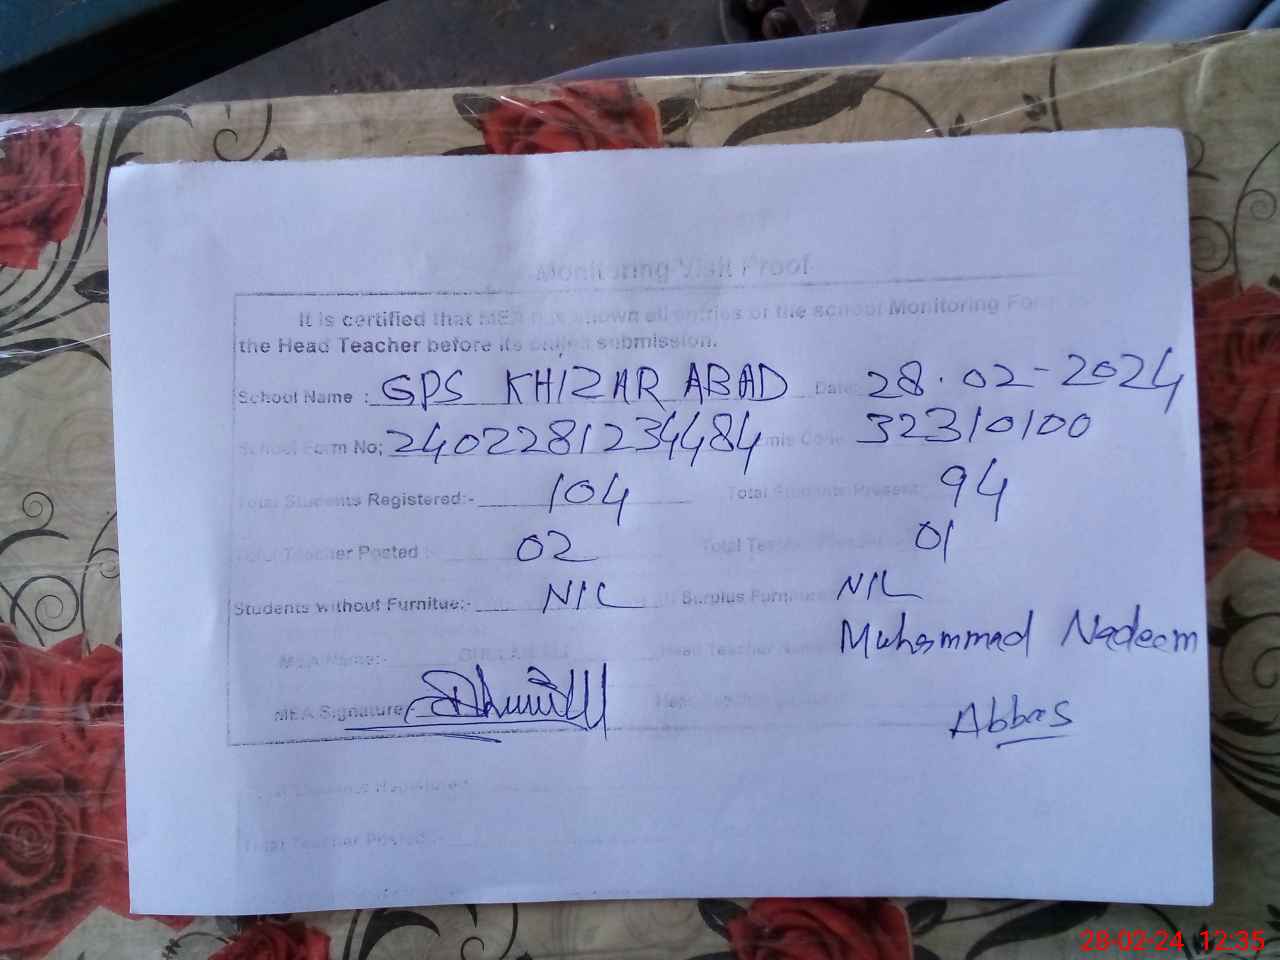 Monitoring Visit Proof
It is certified that MEA has shown all entries of the school Monitoring Form to
the Head Teacher before its submission.
School Name : GPS KHIZAR ABAD Date: 28.02-2024
School Form No; 2402281234484 Emis Code 32310100
Total Students Registered:- 104 Total Students Present: 94
Total Teacher Posted : 02 Total Teacher Present 01
Students without Furnitue:- NIL Surplus Furniture NIL
MEA Name:- Head Teacher Name Muhammad Nadeem
MEA Signature:- Abbas
Total Students Registered
Total Teacher Posted :-
28-02-24 12:35